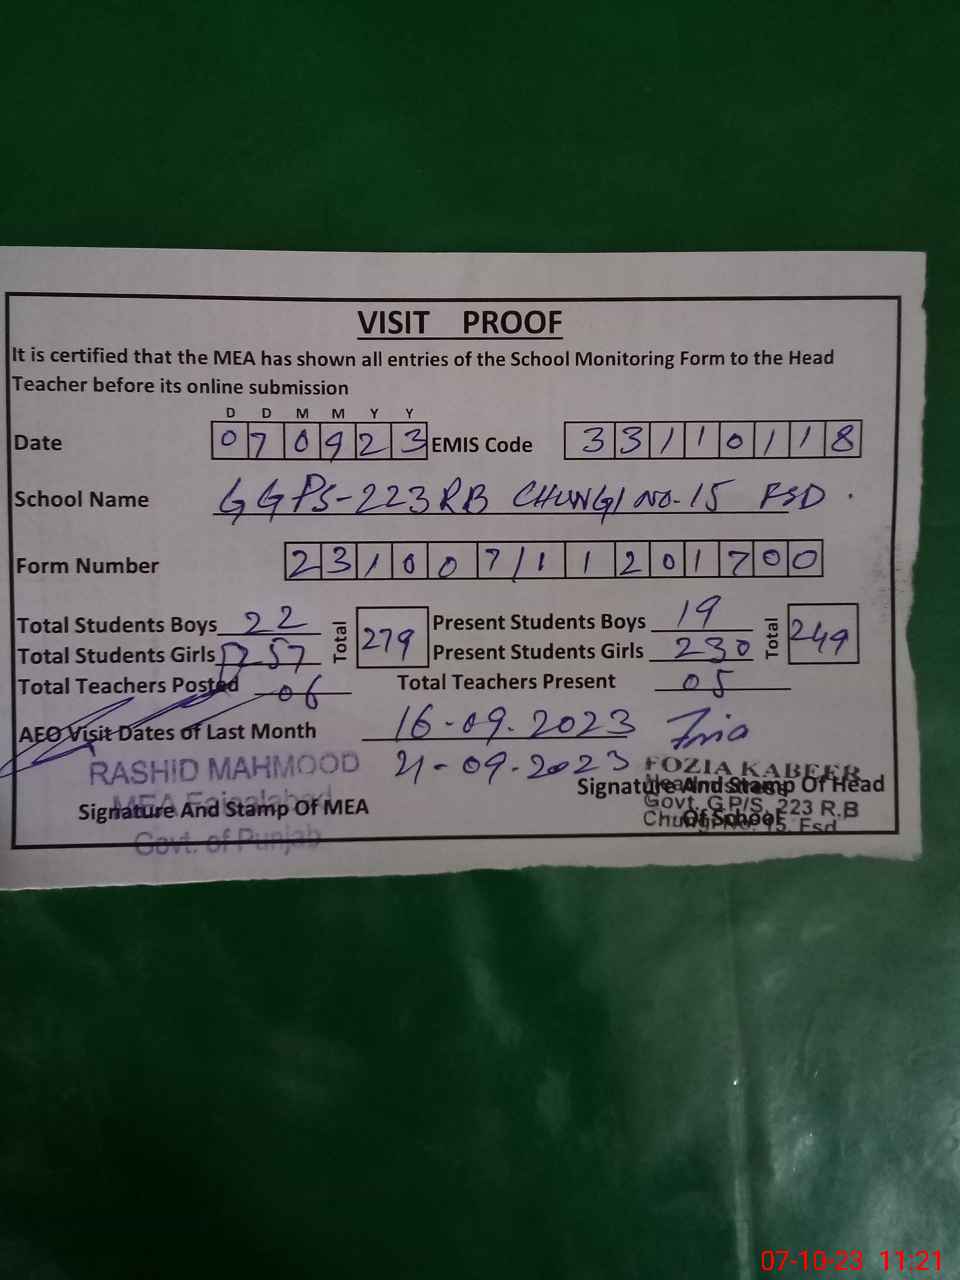 VISIT PROOF
It is certified that the MEA has shown all entries of the School Monitoring Form to the Head
Teacher before its online submission
D D M M Y Y
Date 070923 EMIS Code 33110118
School Name GGPS-223RB CHUNGI NO-15 FSD.
Form Number 231007/11201700
Total Students Boys 22 Total 279 Present Students Boys 19 Total 249
Total Students Girls 257 Present Students Girls 230
Total Teachers Posted 06 Total Teachers Present 05
AEO Visit Dates of Last Month 16-09.2023
21-09.2023
RASHID MAHMOOD
MEA Faisalabad
Govt. of Punjab
Signature And Stamp Of MEA
FOZIA KABEER
Headmistress
Govt. G.P/S. 223 R.B
Chungi No. 15, Fsd
Signature And Stamp Of Head
Of School
07-10-23 11:21